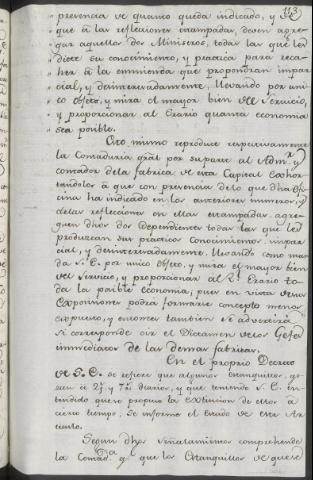 113
presencia de quanto queda indicado, y de
que à las reflecciones estampadas, deven agre-
gar aquellos dos Ministros, todas las que les
dicte su conocimiento, y practica para reca-
her à la enmienda que propondran impar-
cial, y desinteresadamente, llevando por uni-
co objeto, y mira el mayor bien del Servicio,
y proporcionar al Erario quanta economia
sea posible.
Esto mismo reproduce respectivamente
la Contaduria gral por su parte al Admor y
Contador de la fabrica de esta Capital exhor-
tandolos à que con presencia de lo que dha ofi-
cina ha indicado en los anteriores numeros, y
de las reflecciones en ellas estampadas, agre-
guen dhos dos Dependientes todas las que les
produzcan sus practicos conocimientos impar-
cial, y desinteresadamente. Llevando como man-
da V. E. por unico objeto, y mira el mayor bien
del Servicio, y proporcionar al Rl. Erario to-
da la posible economia, pues en vista de sus
Exposiciones podra formarse concepto menos
expuesto, y entonces tambien se advertirá
si corresponde oir el Dictamen de los Gefes
immediatos de las demas fabricas.
En el proprio Decreto
de V. E. se refiere que algunos estanquillos, go-
zan à 2 r. y 7 r. diarios, y que teniendo V. E. en-
tendido que se propuso la extincion de ellos à
cierto tiempo, se informe el estado de este Ar-
ticulo.
Segun dhos Señalamientos comprehende
la Contada. gl. que los Estanquillos de que se